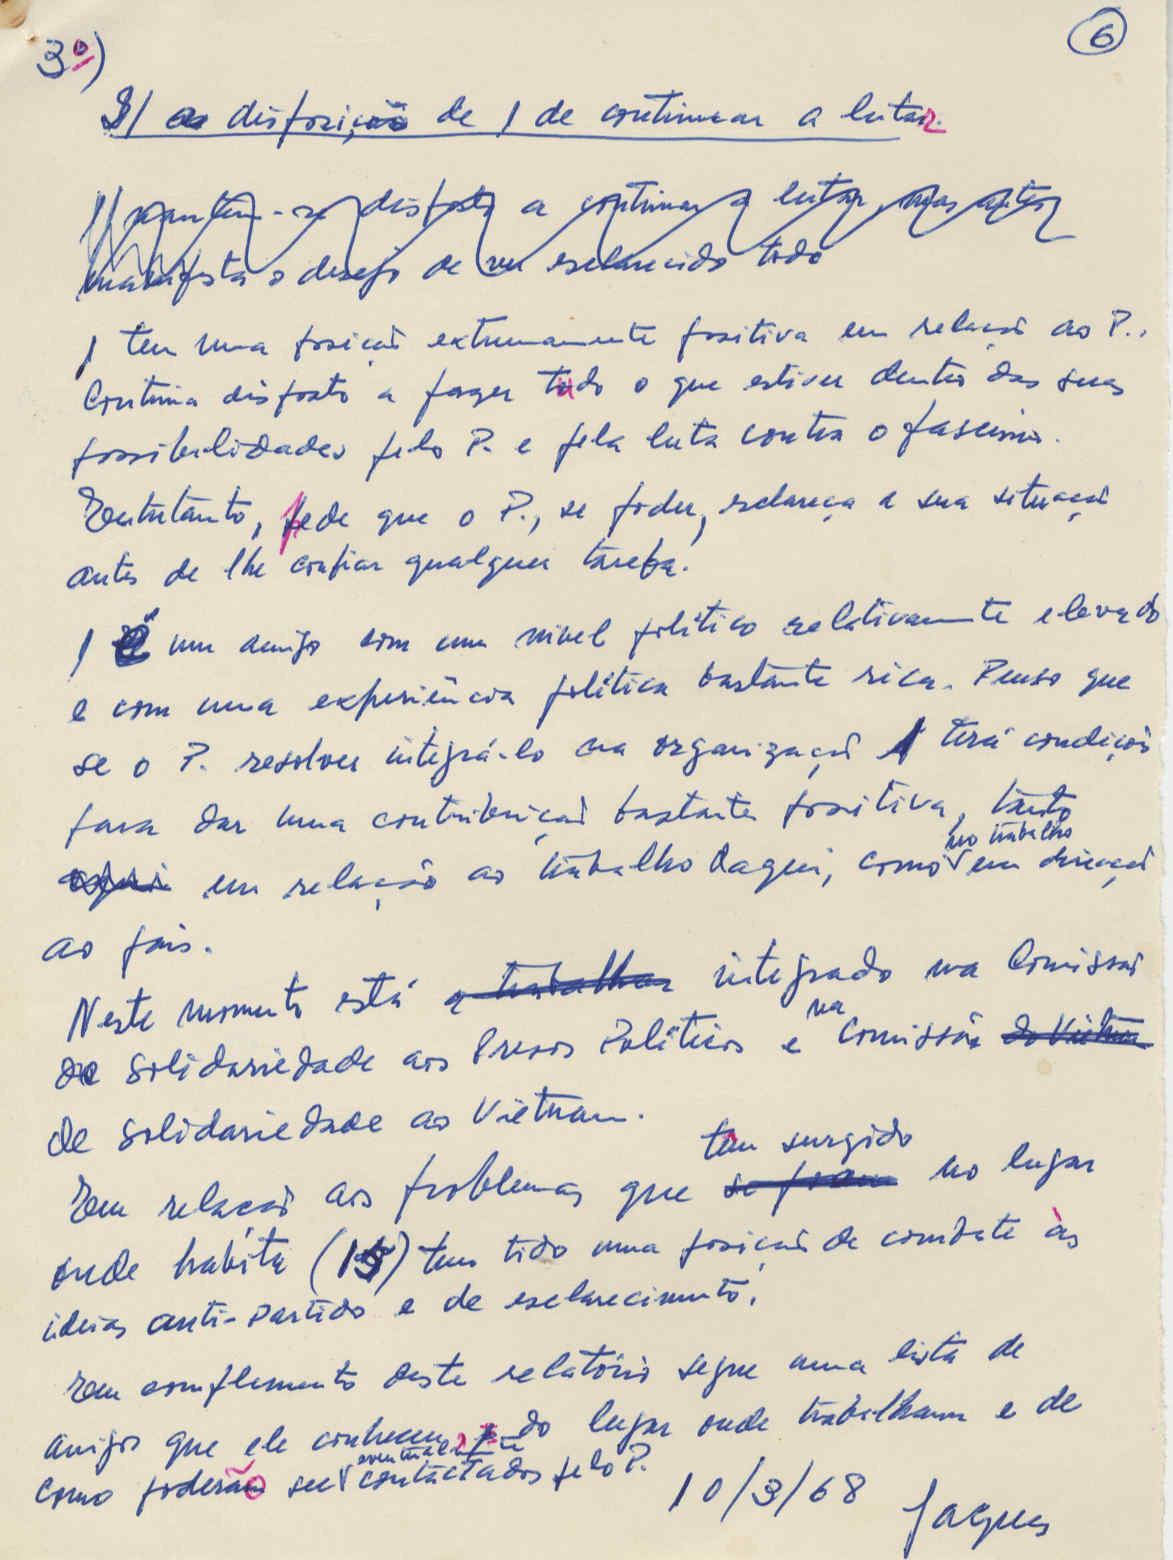 6
3º)
A disposição de 1 de continuar a lutar.
1 mantém-se disposto a continuar a lutar, mas antes
manifesta o desejo de ver esclarecido todo
1 tem uma posição extremamente positiva em relação ao P..
Continua disposto a fazer tudo o que estiver dentro das suas
possibilidades pelo P. e pela luta contra o fascismo.
Entretanto, pede que o P., se puder, esclareça a sua situação
antes de lhe confiar qualquer tarefa.
1 É um amigo com um nível político relativamente elevado
e com uma experiência política bastante rica. Penso que
se o P. resolver integrá-lo na organização 1 terá condições
para dar uma contribuição bastante positiva, tanto
aqui em relação ao trabalho daqui, como no trabalho em direcção
ao país.
Neste momento está a trabalhar integrado na Comissão
de Solidariedade aos Presos Políticos e na Comissão do Vietnam
de Solidariedade ao Vietnam.
Em relação aos problemas que se põem têm surgido no lugar
onde habita (15) tem tido uma posição de combate às
ideias anti-Partido e de esclarecimento.
Em complemento deste relatório segue uma lista de
amigos que ele conheceu, do lugar onde trabalham e de
como poderão ser eventualmente contactados pelo P.
10/3/68 Jaques